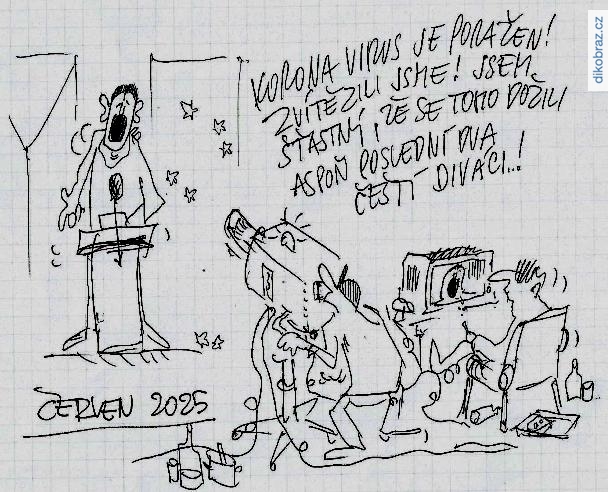 dikobraz.cz
KORONA VIRUS JE PORAŽEN!
ZVÍTĚZILI JSME! JSEM
ŠŤASTNÝ, ŽE SE TOHO DOŽILI
ASPOŇ POSLEDNÍ DVA
ČEŠTÍ DIVÁCI..!
ČERVEN 2025